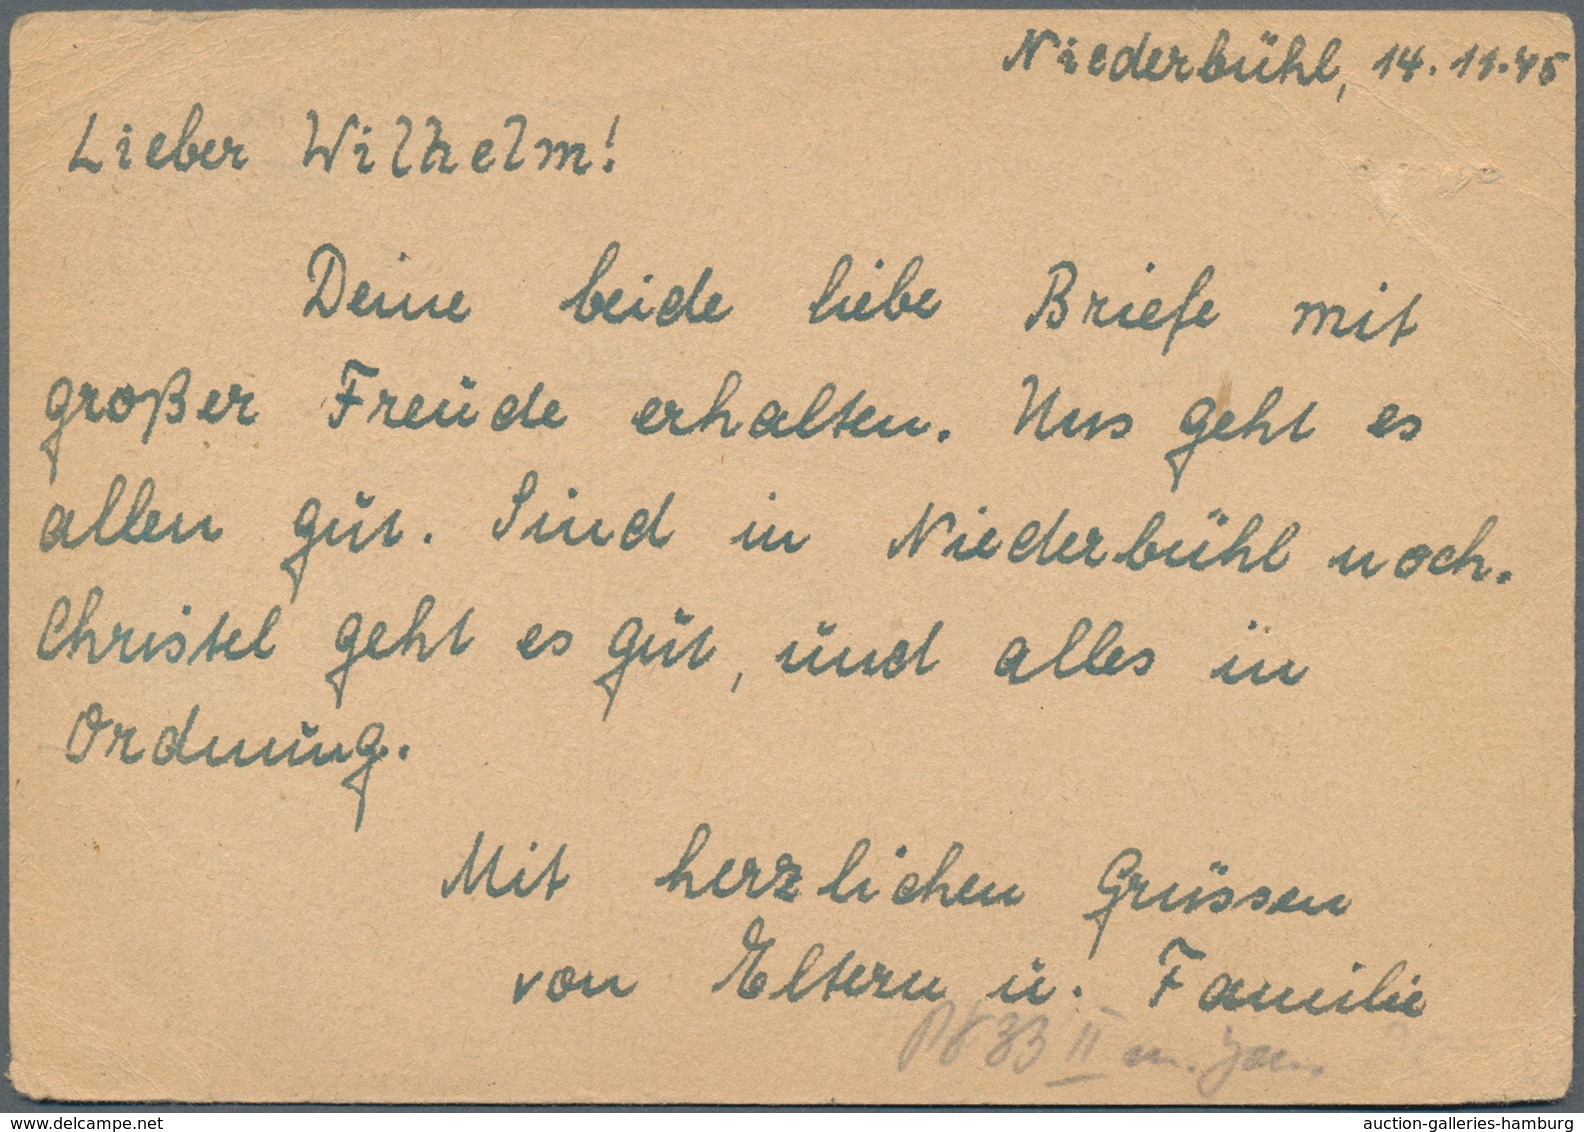 Niederbühl, 14.11.45
Lieber Wilhelm!
Deine beide liebe Briefe mit
großer Freude erhalten. Uns geht es
allen gut. Sind in Niederbühl noch.
Christel geht es gut, und alles in
Ordnung.
Mit herzlichen Grüssen
von Eltern u. Familie
II m.
auction-galleries-hamburg